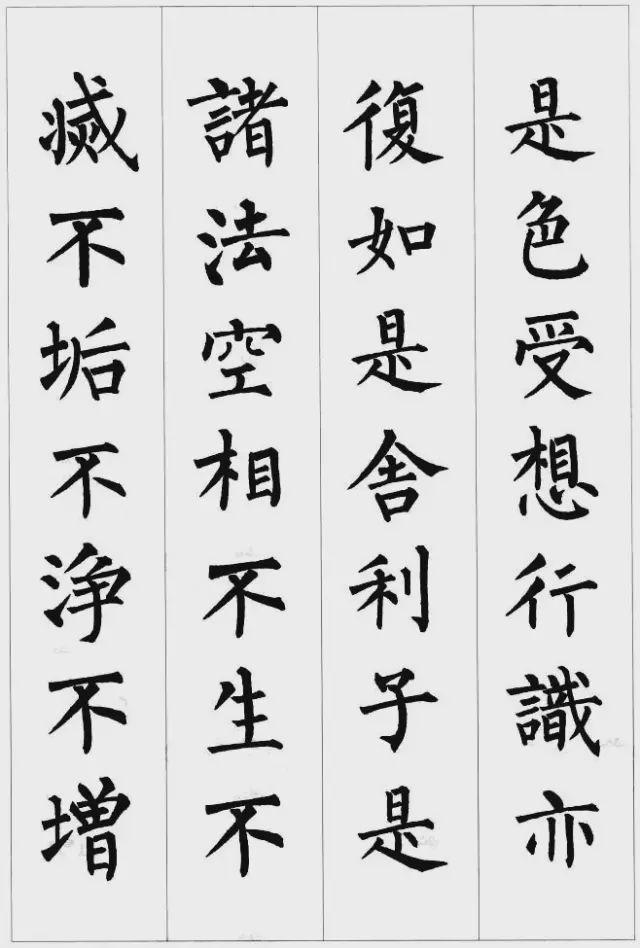 是色受想行識亦
復如是舎利子是
諸法空相不生不
滅不垢不浄不増